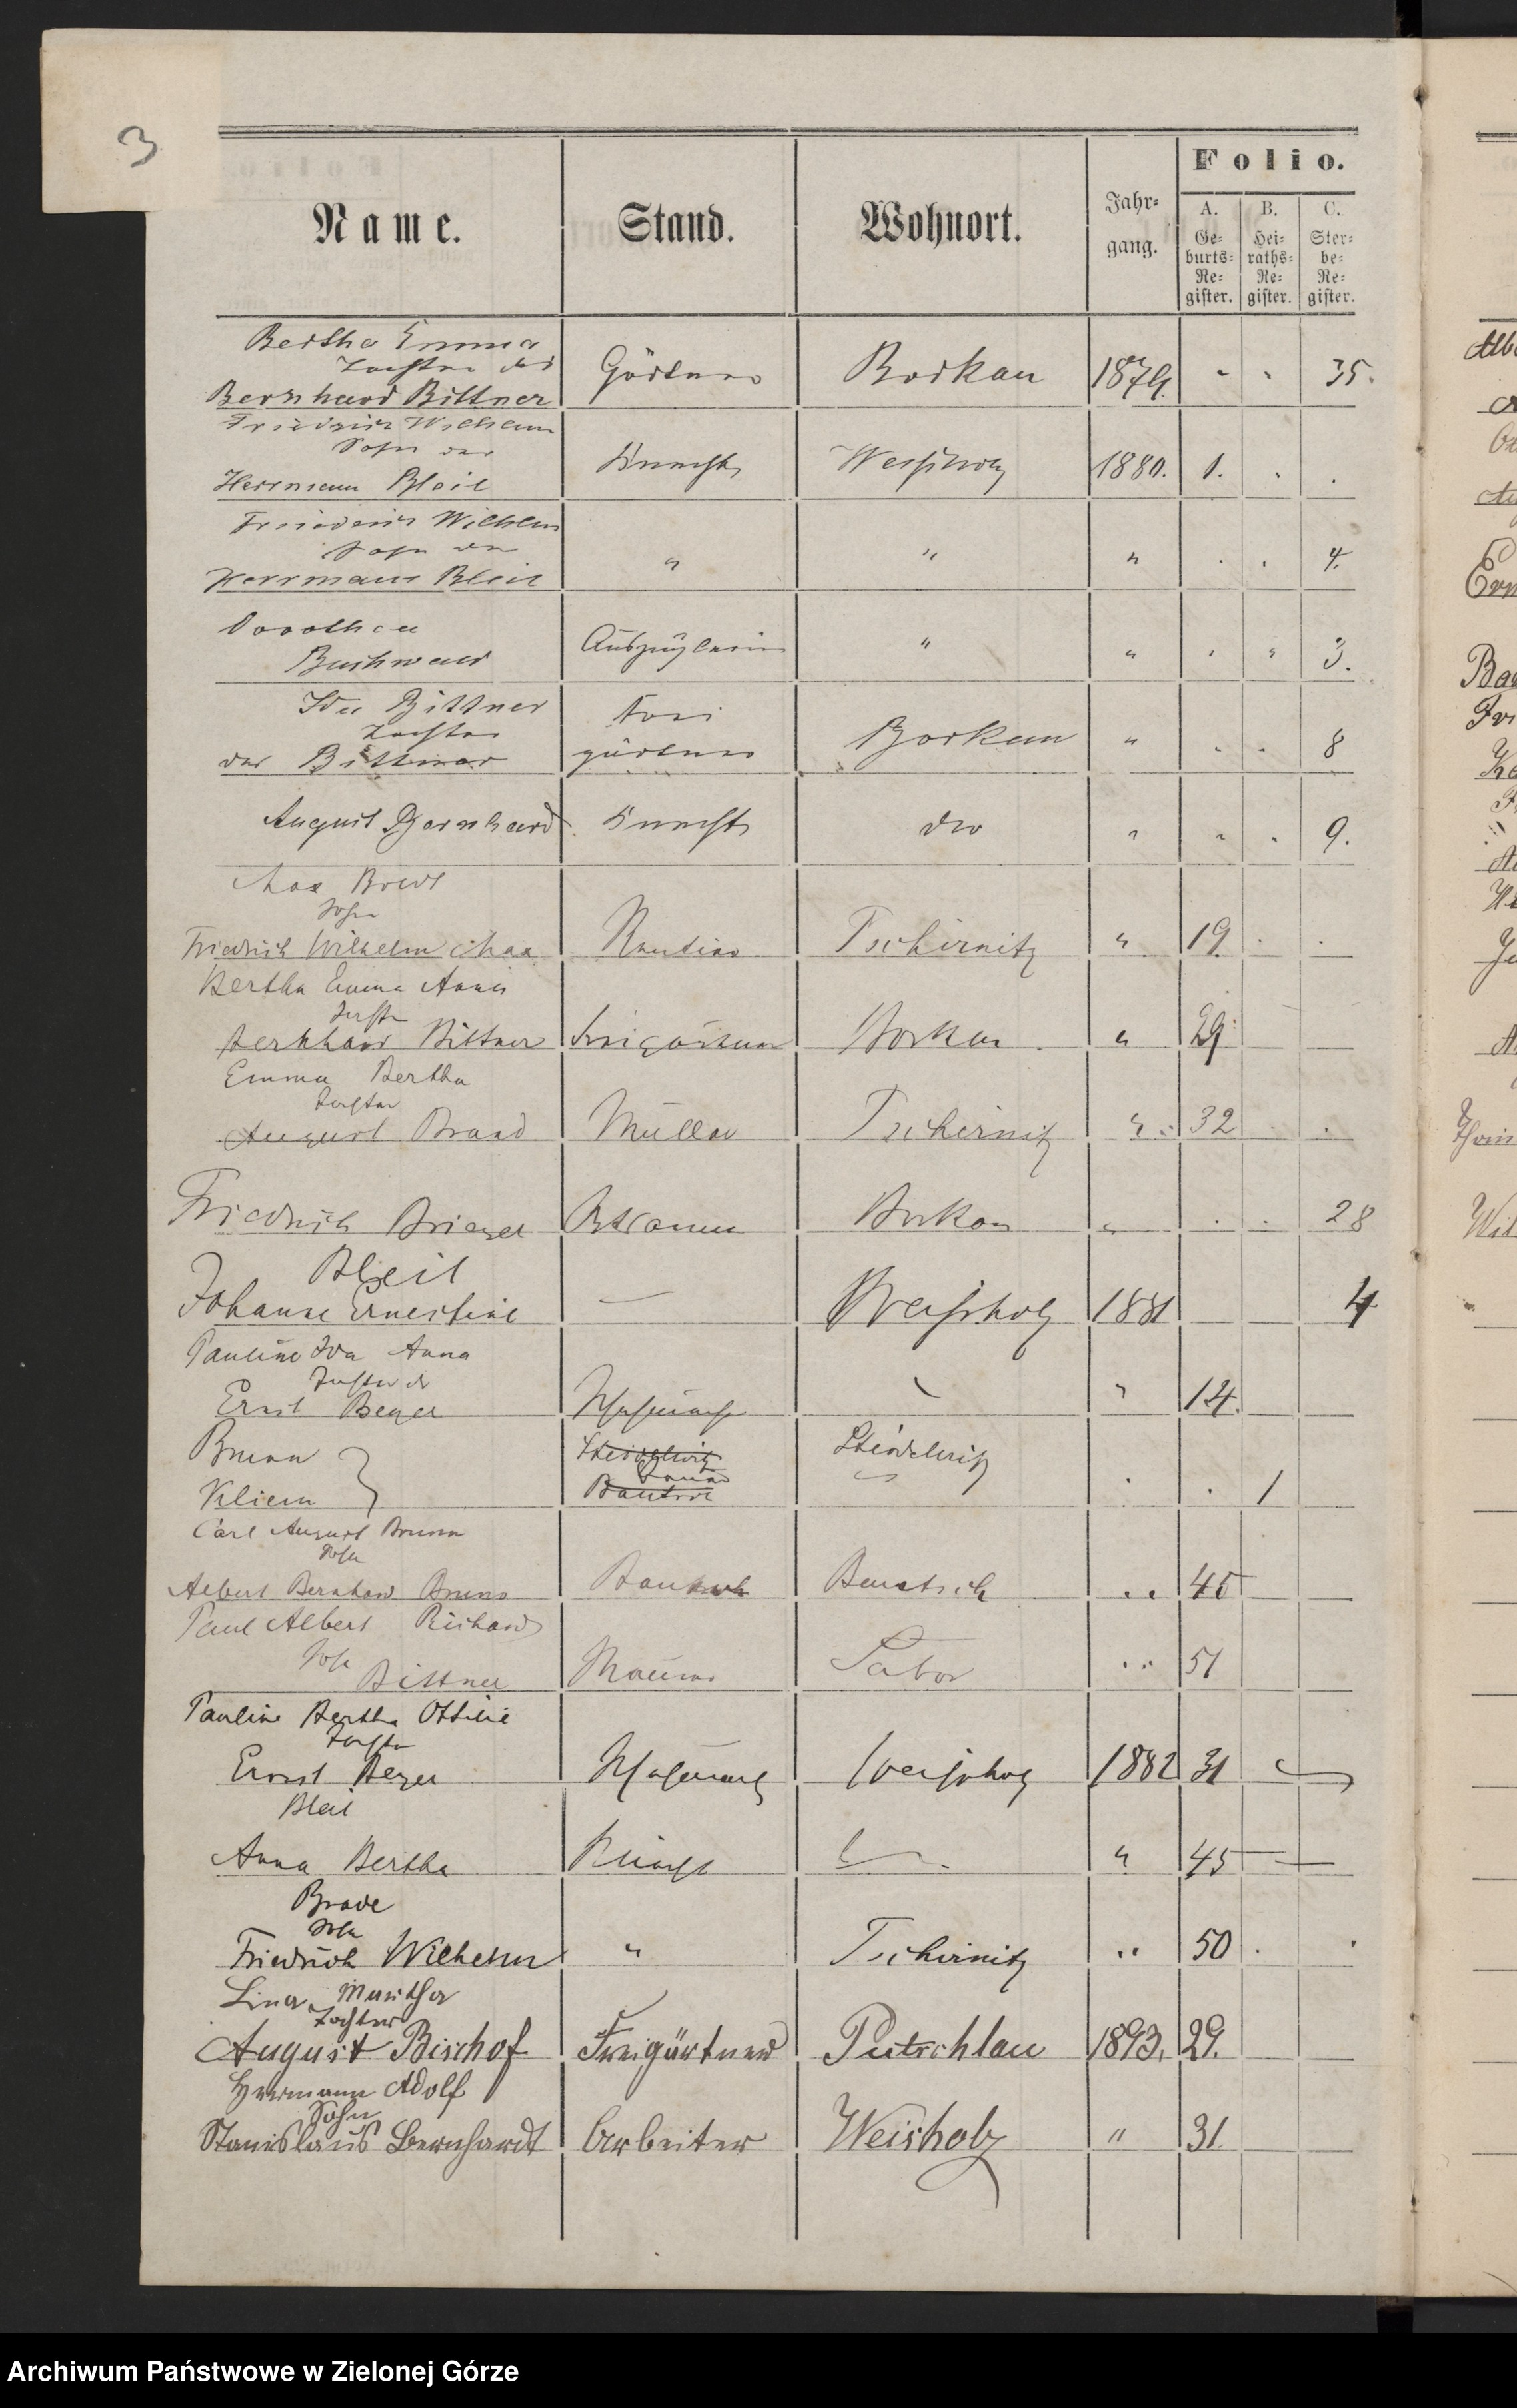 3
Name.
Stand.
Wohnort.
Jahr-
gang.
Folio.
A.
Ge-
burts-
Re-
gister.
B.
Hei-
raths-
Re-
gister.
C.
Ster-
be-
Re-
gister.
Bertha Emma
Tochter des
Bernhard Bittner Gärtner Borkau 1879. " " 35.
Friedrich Wilhelm
Sohn des
Herrmann Bleil Knecht Weisholz 1880. 1. . .
Friedrich Wilhelm
Sohn des
Herrmann Bleil " " " . . 4.
Dorothea
Buchwald Auszüglerin " " . " 3.
Ida Bittner
Tochter
des Bittner Freigärtner Borkau " . . 8
August Bernhard Knecht dto " " . 9.
Max Bredt
Sohn
Friedrich Wilhelm Max Rentier Tschirnitz " 19. . .
Bertha Emma Anna
Tochter
Bernhard Bittner Freigärtner Borkau " 29
Emma Bertha
Tochter
August Brand Müller Tschirnitz " 32 . .
Friedrich Brieger Borkau " . . 28
Bleil
Johanne Ernestine — Weisholz 1881 4
Pauline Ida Anna
Tochter d
Ernst Beyer " 14.
Brunn
Kliem Steindelwitz . . 1
Carl August Brunn
Sohn
Albert Bernhard Bruno Bautsch " 45
Paul Albert Richard
Sohn
Bittner Maurer Tabor " 51
Pauline Bertha Ottilie
Tochter
Ernst Beyer Weisholz 1882 31
Bleil
Anna Bertha Knecht " 45
Brade
Sohn
Friedrich Wilhelm " Tschirnitz " 50 . .
Lina Martha
Tochter
August Bischof Freigärtner Putschlau 1893. 29.
Hermann Adolf
Sohn
Stanislaus Bernhardt Arbeiter Weisholz " 31.
Archiwum Państwowe w Zielonej Górze